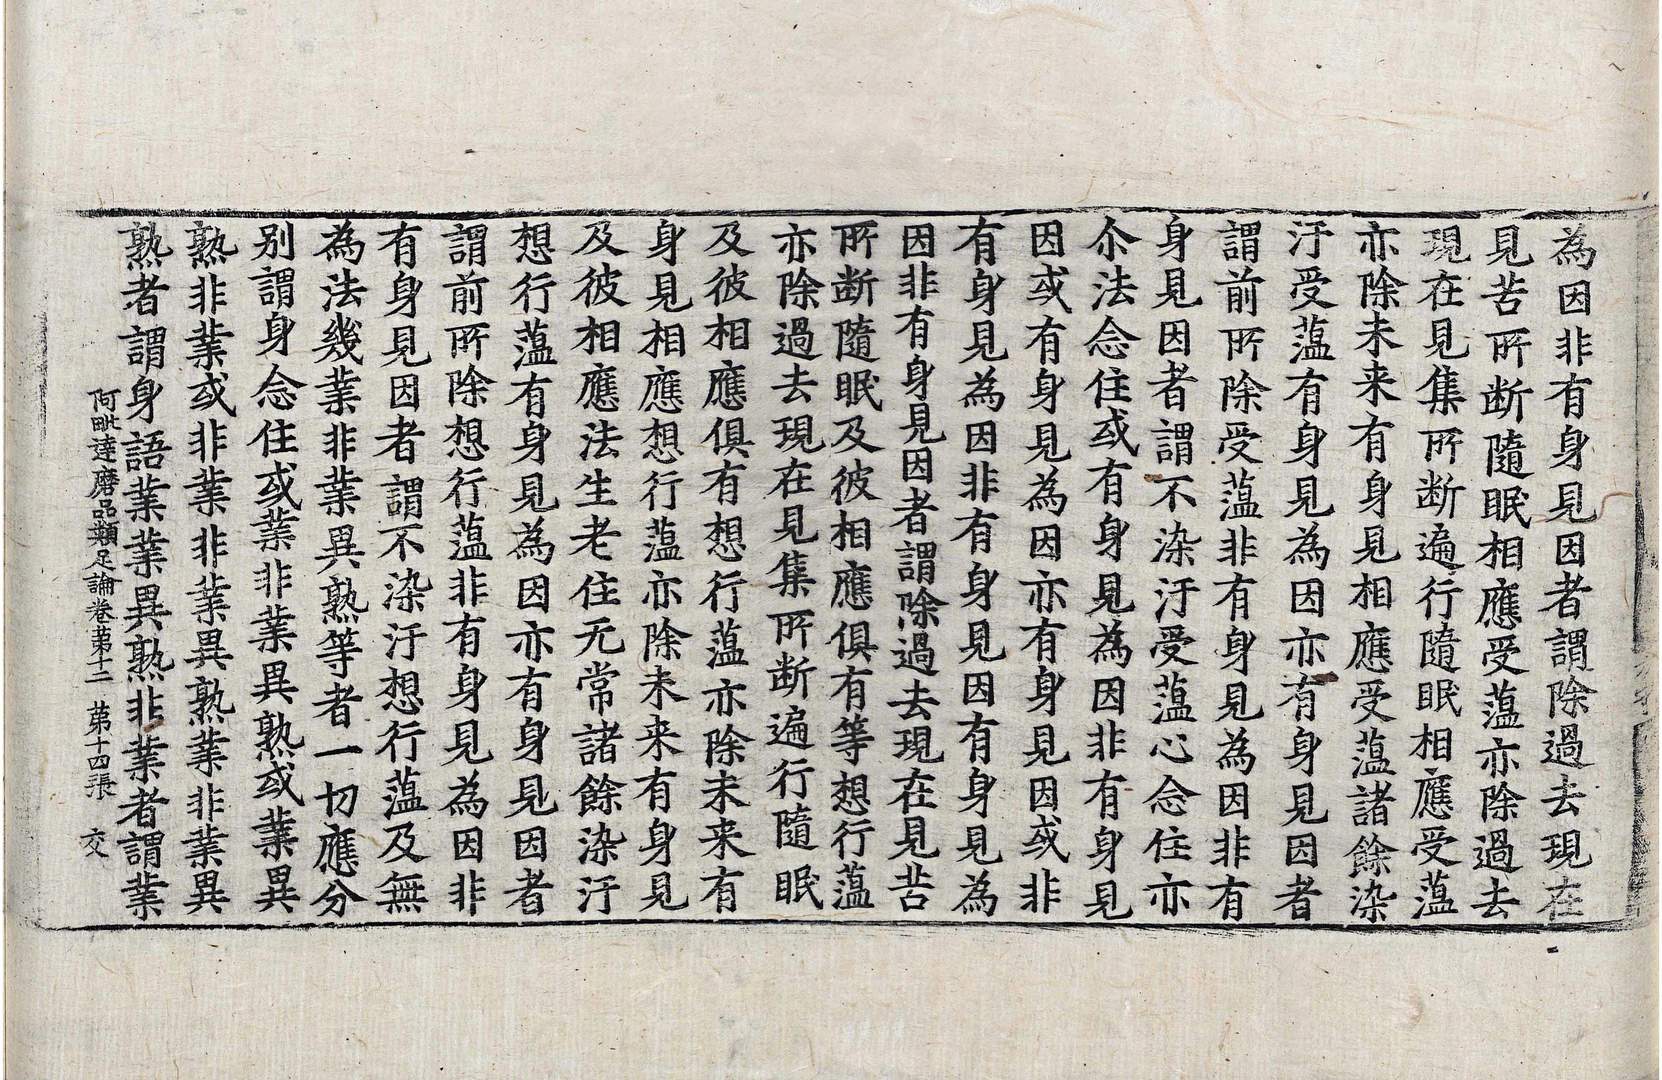 為因非有身見因者謂除過去現在
見苦所断隨眠相應受薀亦除過去
現在見集所断遍行隨眠相應受薀
亦除未来有身見相應受薀諸餘染
汙受薀有身見為因亦有身見因者
謂前所除受薀非有身見為因非有
身見因者謂不染汙受薀心念住亦
尒法念住或有身見為因非有身見
因或有身見為因亦有身見因或非
有身見為因非有身見因有身見為
因非有身見因者謂除過去現在見苦
所断隨眠及彼相應俱有等想行薀
亦除過去現在見集所断遍行隨眠
及彼相應俱有想行薀亦除未来有
身見相應想行薀亦除未来有身見
及彼相應法生老住无常諸餘染汙
想行薀有身見為因亦有身見因者
謂前所除想行薀非有身見為因非
有身見因者謂不染汙想行薀及無
為法幾業非業異熟等者一切應分
别謂身念住或業非業異熟或業異
熟非業或非業非業異熟業非業異
熟者謂身語業業異熟非業者謂業
阿毗達磨品類足論卷苐十二 苐十四張 交